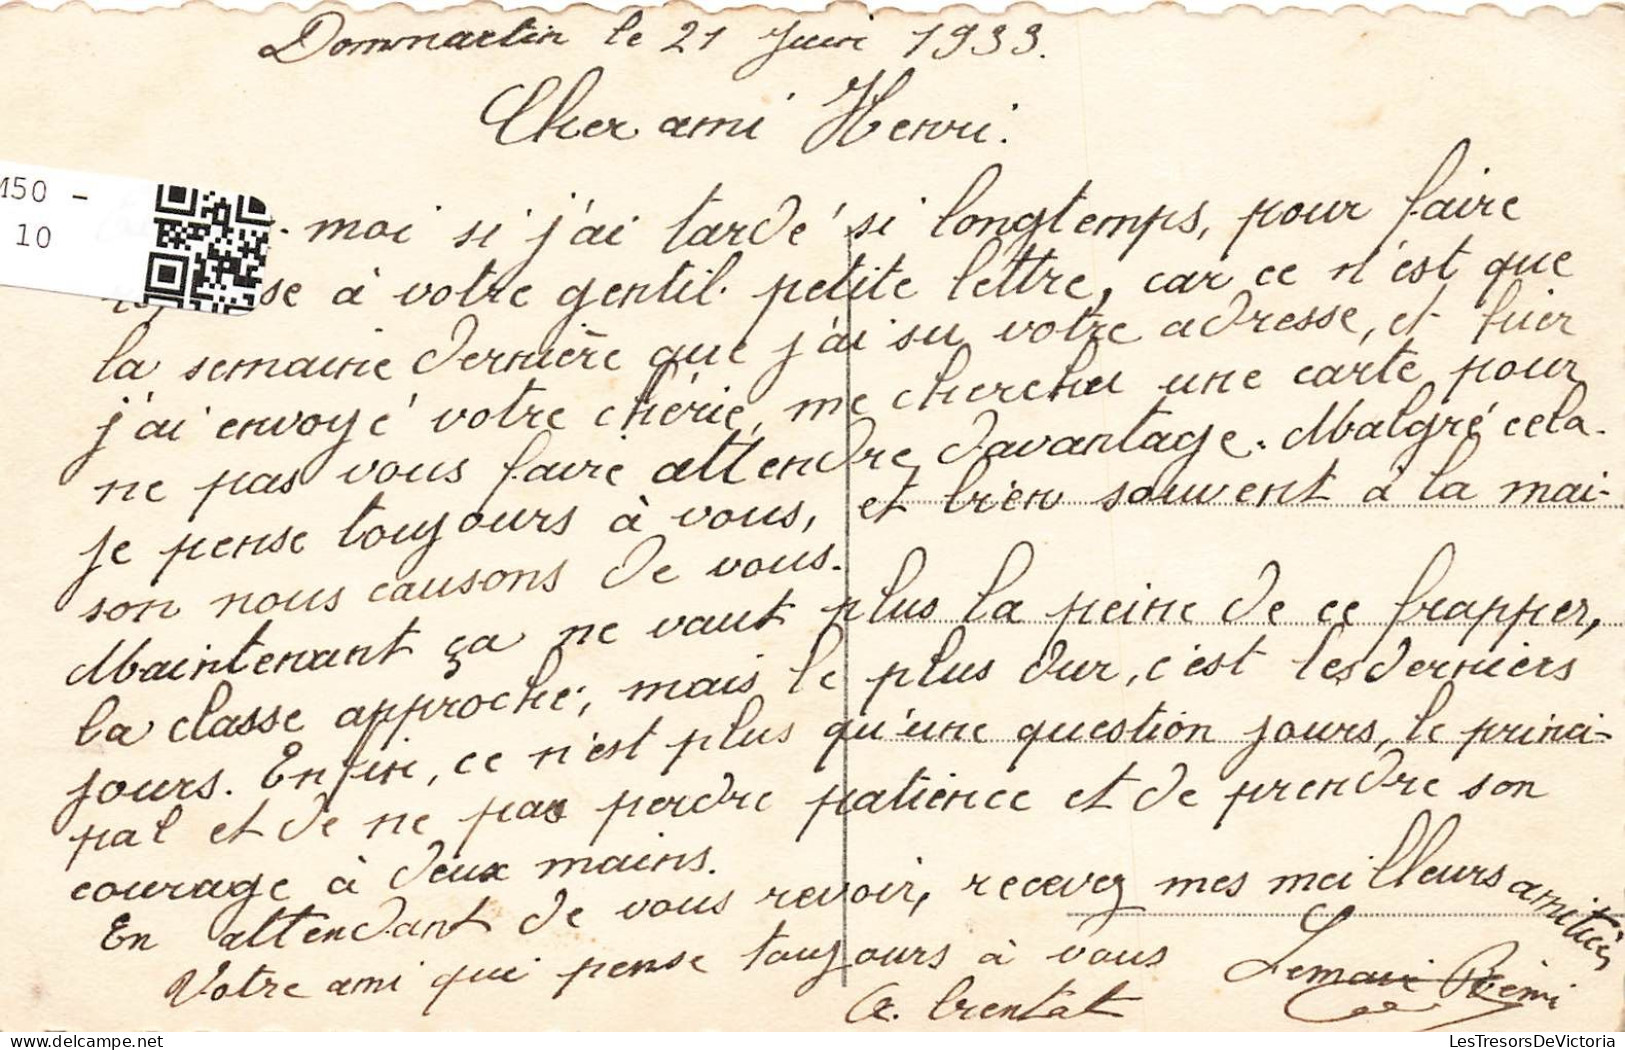 Dommartin le 21 Juin 1933.
Cher ami Henri.
150 -
10
moi si j'ai tardé si longtemps, pour faire
se à votre gentil. petite lettre, car ce n'est que
la semaine dernière que j'ai su votre adresse, et hier
j'ai envoyé votre chérie, me chercher une carte pour
ne pas vous faire attendre davantage. Malgré cela.
je pense toujours à vous, et bien souvent à la mai-
son nous causons de vous.
Maintenant ça ne vaut plus la peine de ce frapper,
la classe approche; mais le plus dur, c'est les derniers
jours. Enfin, ce n'est plus qu'une question jours, le princi-
pal et de ne pas perdre patience et de prendre son
courage à deux mains.
En attendant de vous revoir, recevez mes meilleurs amitiés
Votre ami qui pense toujours à vous
Lemari Rémi
LesTresorsDeVictoria
delcampe.net